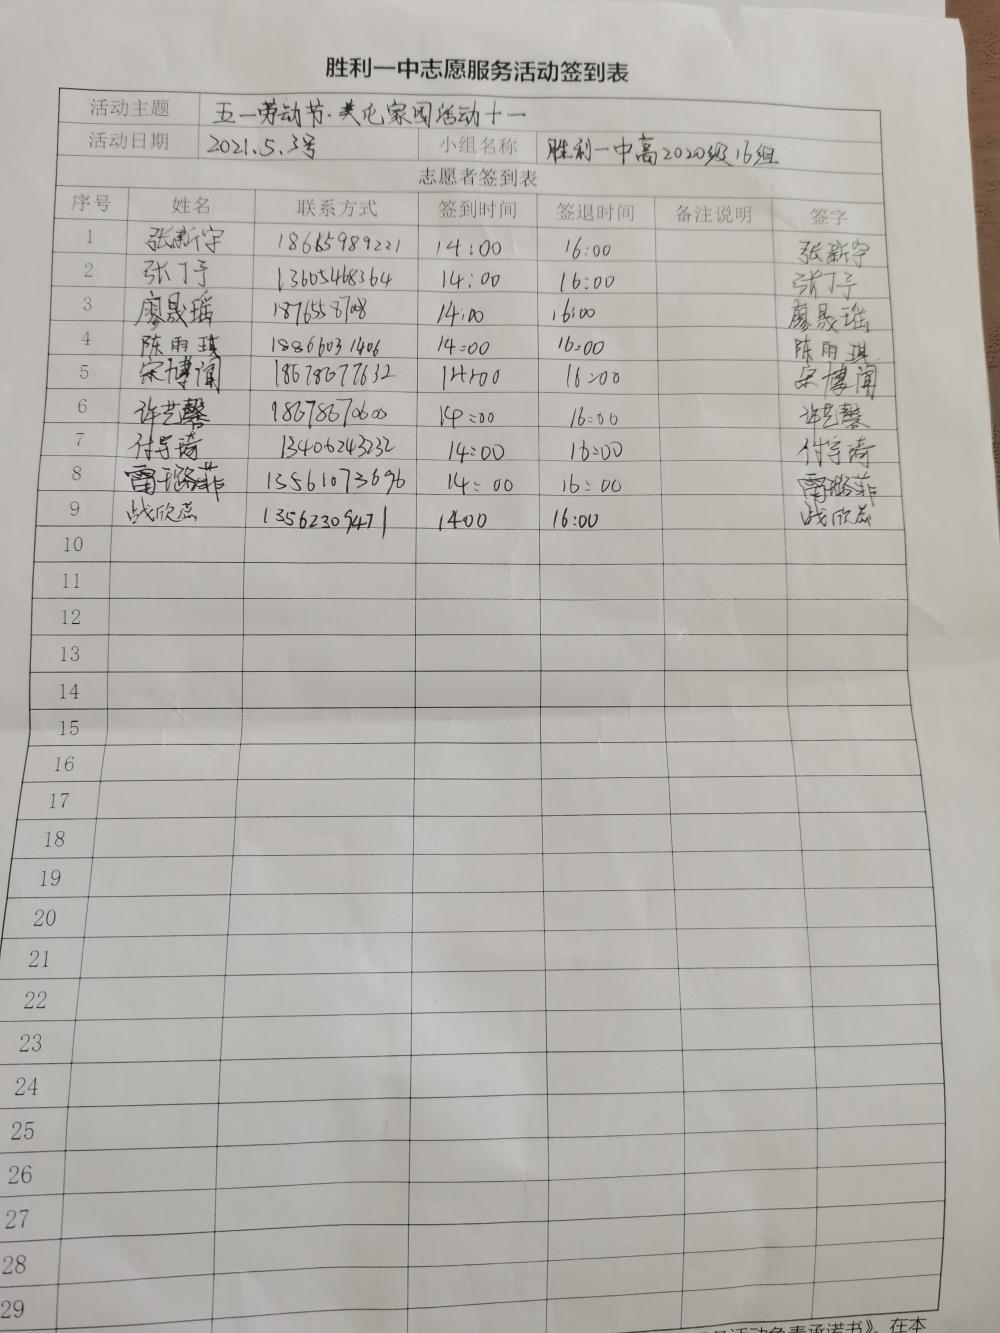 胜利一中志愿服务活动签到表
活动主题 五一劳动节·美化家园活动十一
活动日期 2021.5.3号 小组名称 胜利一中高2020级16组
志愿者签到表
序号 姓名 联系方式 签到时间 签退时间 备注说明 签字
1 张新宇 18665989221 14:00 16:00 张新宇
2 张丁予 13605468364 14:00 16:00 张丁予
3 廖晟瑶 1876558708 14:00 16:00 廖晟瑶
4 陈雨琪 18866031406 14:00 16:00 陈雨琪
5 宋博闻 18678677632 14:00 16:00 宋博闻
6 许艺馨 18678670600 14:00 16:00 许艺馨
7 付宇琦 13406243232 14:00 16:00 付宇琦
8 雷璐菲 13561073696 14:00 16:00 雷璐菲
9 战欣蕊 13562309471 1400 16:00 战欣蕊
10
11
12
13
14
15
16
17
18
19
20
21
22
23
24
25
26
27
28
29
活动免责承诺书》。在本